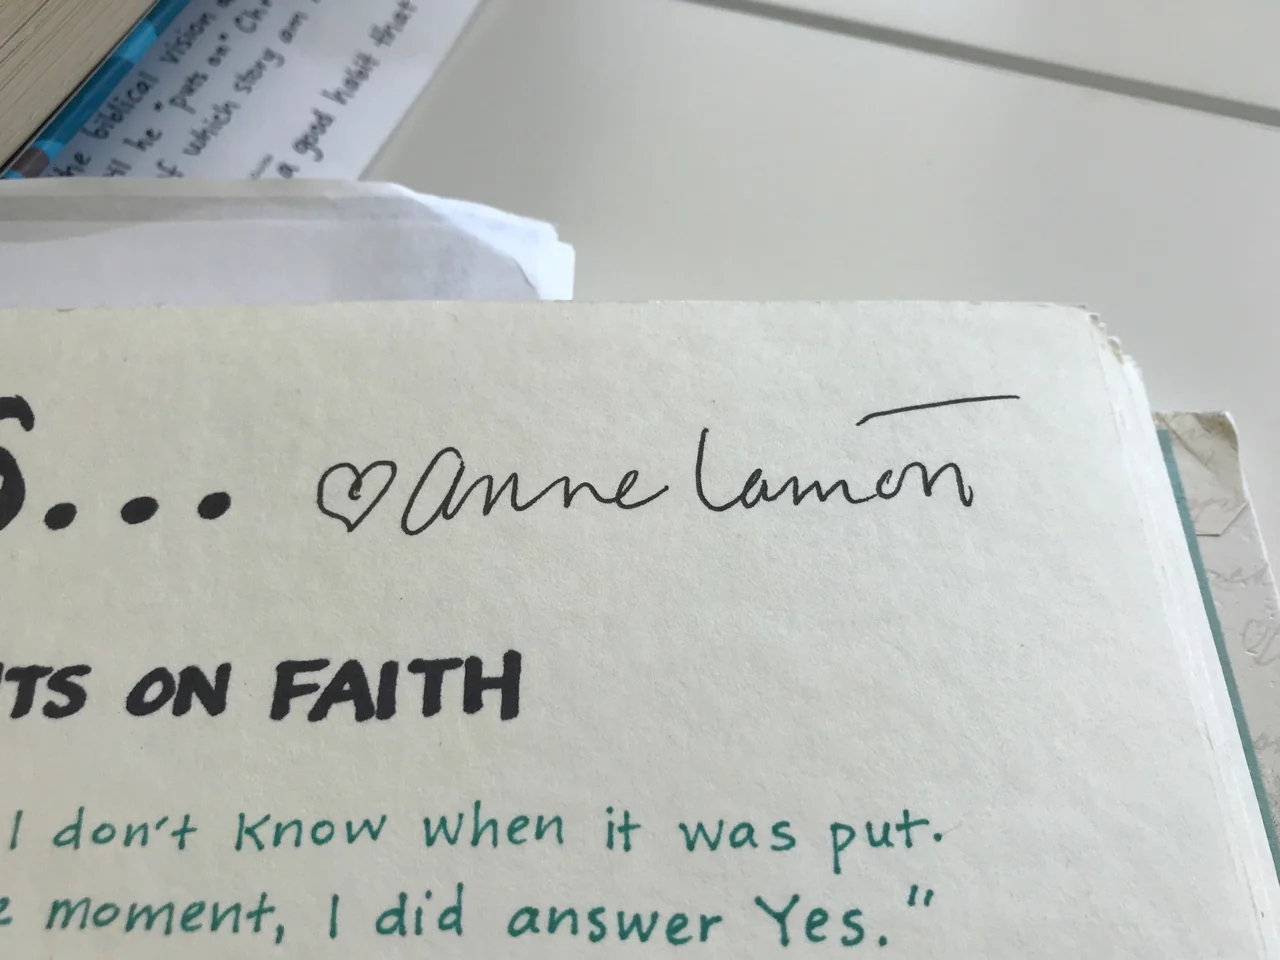 the biblical vision
he "puts on" Ch
of which story am
a good habit that
... ♡ anne lamott
TS ON FAITH
I don't know when it was put.
moment, I did answer Yes."